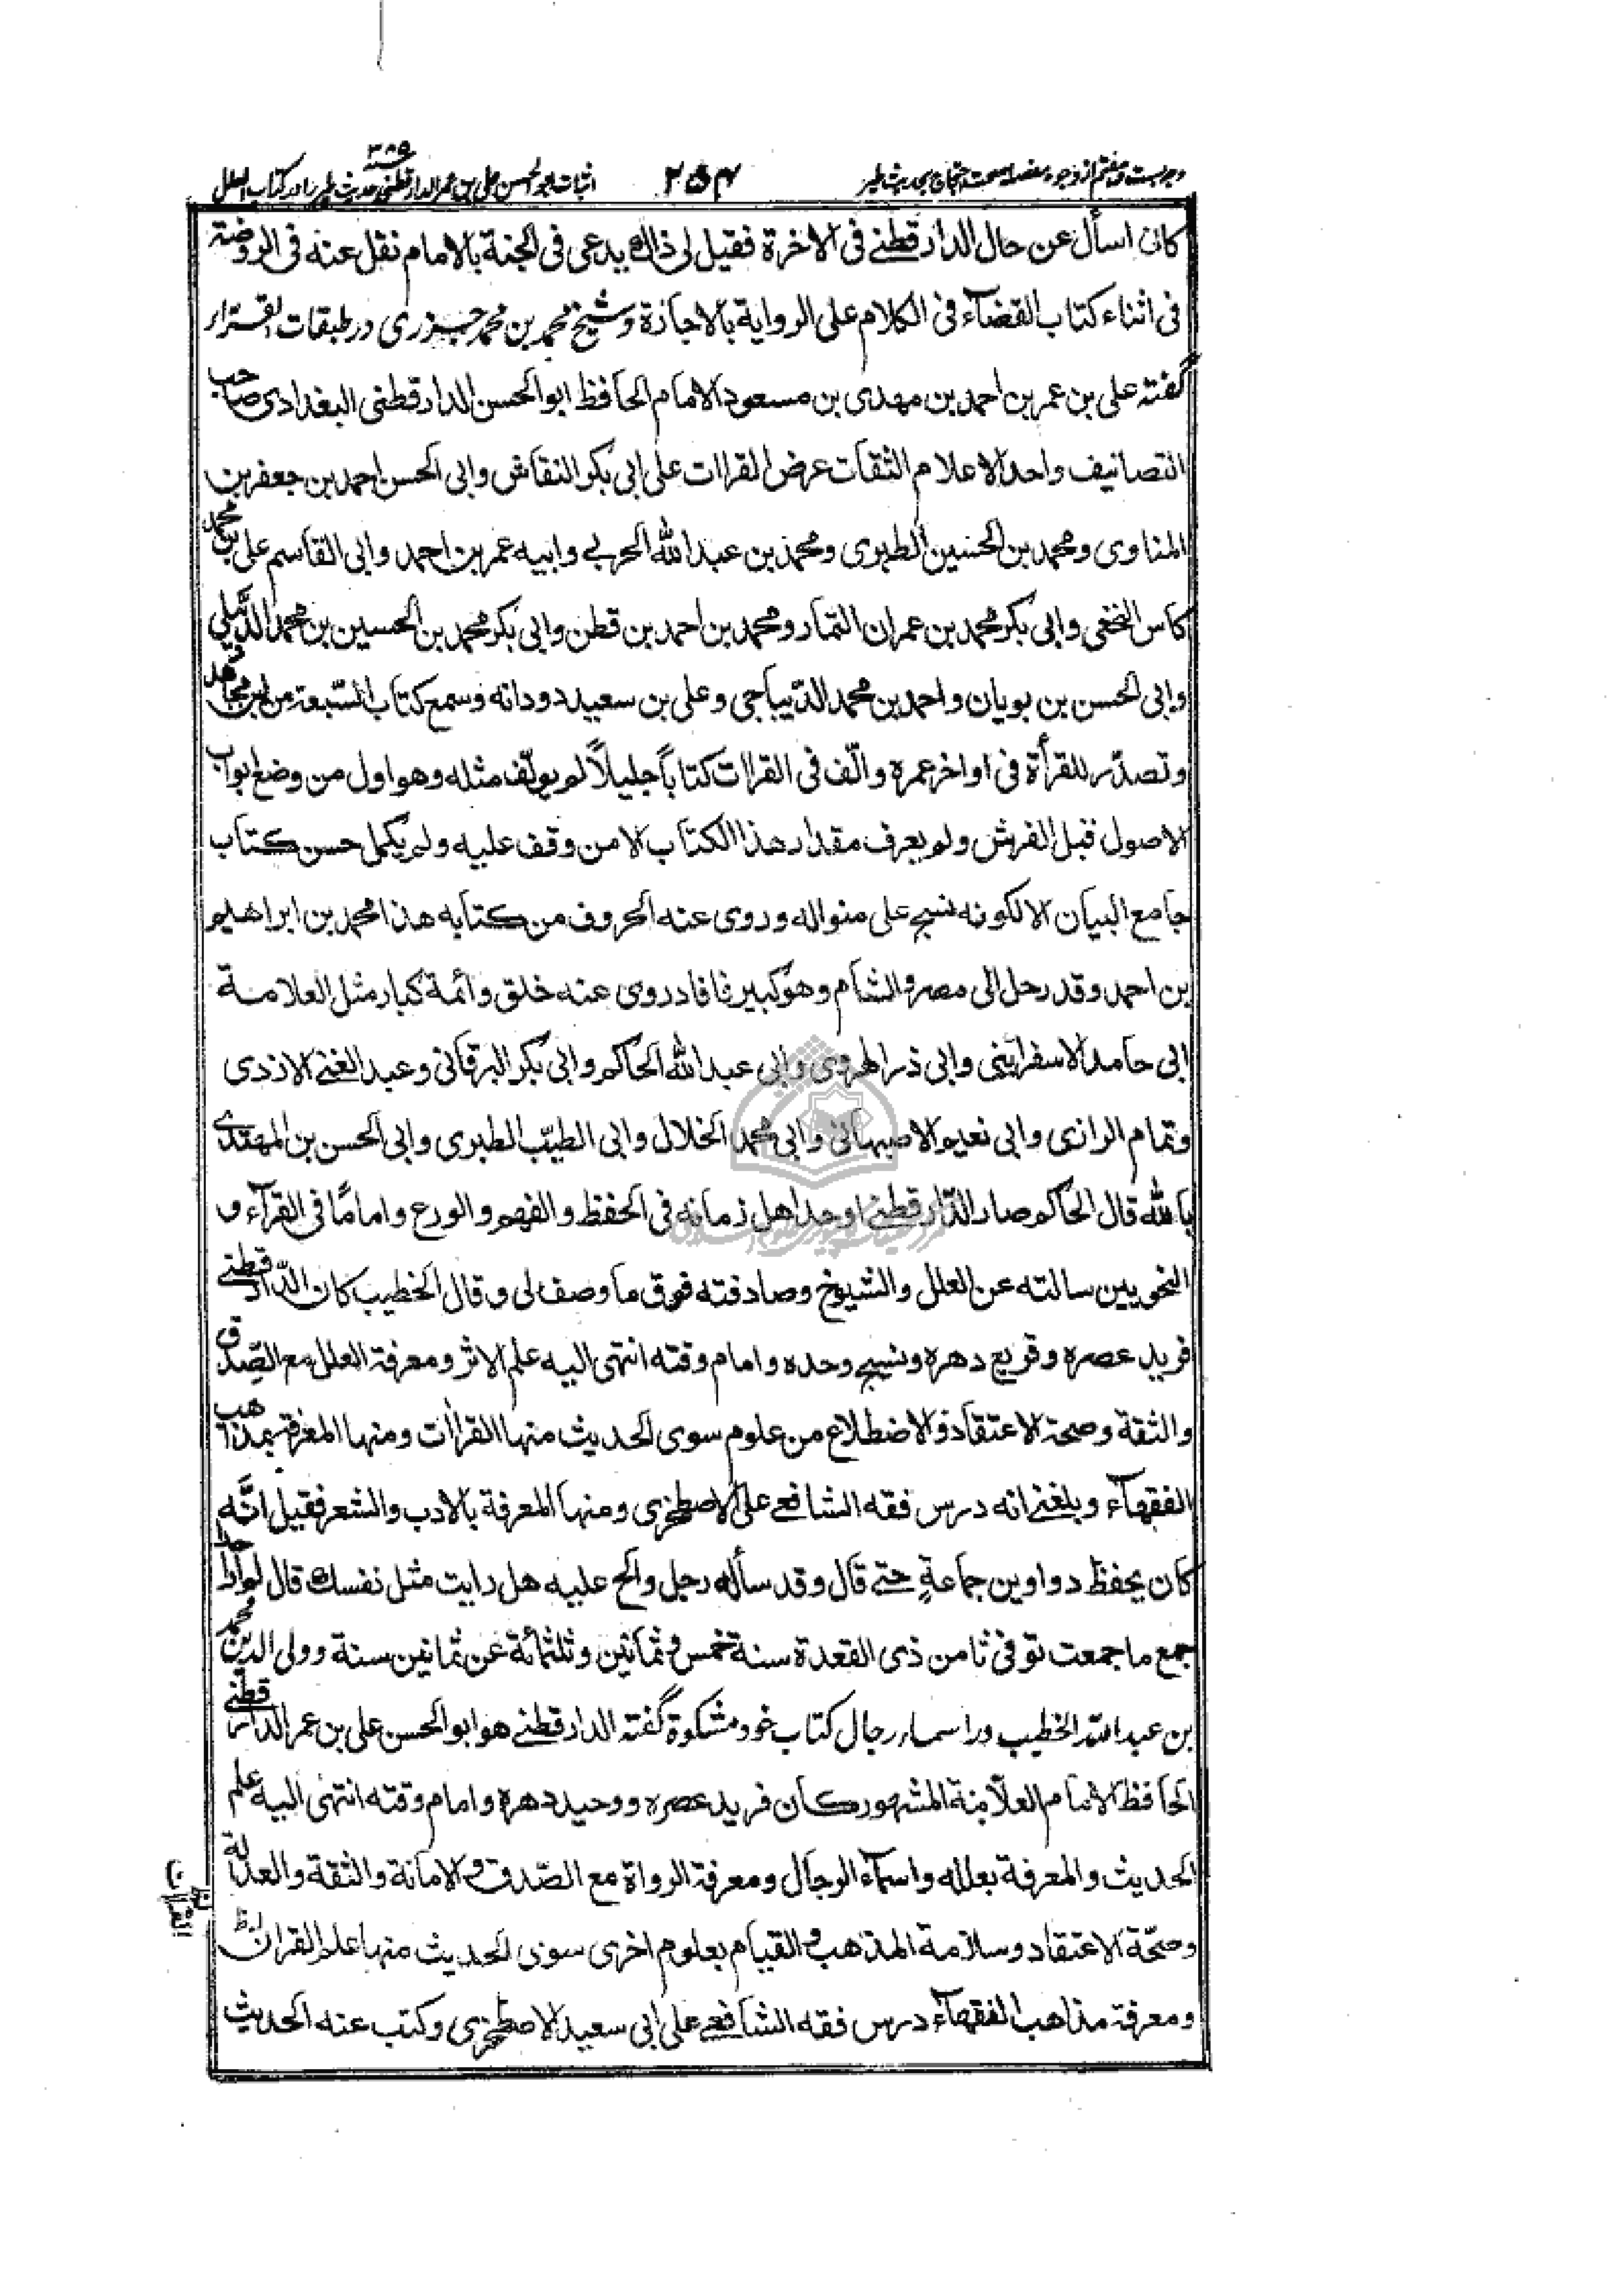 وجه بست و هفتم از وجوه مفصله صحت احتجاج بحدیث طیر
۲۵۴
اثبات ابو الحسن علی بن عمر الدارقطنی حدیث طیر را در کتاب العلل
كان اسأل عن حال الدارقطنے فی الاخرة فقیل لی ذاك یدعی فی الجنة بالامام نقل عنه فی الروضة
فی اثناء كتاب القضآء فی الكلام علی الروایة بالاجازة و شیخ محمد بن محمد جزری در طبقات القراء
گفته علی بن عمر بن احمد بن مهدی بن مسعود الامام الحافظ ابو الحسن الدارقطنی البغدادی صاحب
التصانیف واحد الاعلام الثقات عرض القراات علی ابی بكر النقاش وابی الحسن احمد بن جعفر بن
المناوی ومحمد بن الحسین الطبری ومحمد بن عبد الله الحربے وابیه عمر بن احمد وابی القاسم علی بن محمد
كاس النخعی وابی بكر محمد بن عمران التمار ومحمد بن احمد بن قطن وابی بكر محمد بن الحسین بن محمد الدیبلی
وابی الحسن بن بویان واحمد بن محمد الدیباجی وعلی بن سعید دودانه وسمع كتاب السبعة من ابن مجاهد
وتصدّر للقرأة فی اواخر عمره والّف فی القراات كتاباً جلیلاً لم یولّف مثله وهو اول من وضع ابواب
الاصول قبل الفرش ولم یعرف مقدار هذا الكتاب الا من وقف علیه ولم یكمل حسن كتاب
جامع البیان الا لكونه نسج علی منواله وروی عنه الحروف من كتابه هذا محمد بن ابراهیم
بن احمد وقد رحل الی مصر والشام وهو كبیر فافاد روی عنه خلق وائمة كبار مثل العلامة
ابی حامد الاسفراینی وابی ذر الهروی وابی عبد الله الحاكم وابی بكر البرقانی وعبد الغنے الازدی
وتمام الرازی وابی نعیم الاصبهانی وابی محمد الخلال وابی الطیّب الطبری وابی الحسن بن المهتدے
بالله قال الحاكم صار الدّارقطنے اوحد اهل زمانه فی الحفظ والفهم والورع واماما فی القرآء و
النحویین سالته عن العلل والشیوخ وصادفته فوق ما وصف لی وقال الخطیب كان الدّارقطنے
فرید عصره وقریع دهره ونسیج وحده وامام وقته انتهی الیه علم الاثر ومعرفة العلل مع الصّدق
والثقة وصحة الاعتقاد والاضطلاع من علوم سوی الحدیث منها القراٰت ومنها المعرفة بمذاهب
الفقهآء وبلغنے انه درس فقه الشافعے علی الاصطخری ومنها المعرفة بالادب والشعر فقیل انّه
كان یحفظ دواوین جماعةٍ حتے قال وقد سأله رجل والح علیه هل رایت مثل نفسك قال لم ار احدا
جمع ما جمعت توفی ثامن ذی القعدة سنة خمس وثمانین وثلثمائة عن ثمانین سنة وولی الدین محمد
بن عبد الله الخطیب در اسماء رجال كتاب خود مشكوة گفته الدارقطنے هو ابو الحسن علی بن عمر الدارقطنے
الحافظ الامام العلّامة المشهور كان فرید عصره ووحید دهره وامام وقته انتهٰی الیه علم
الحدیث والمعرفة بعلله واسمآء الرجال ومعرفة الرواة مع الصّدق والامانة والثقة والعدالة
وصحّة الاعتقاد وسلامة المذهب والقیام بعلوم اخری سوی الحدیث منها علم القران
ومعرفة مذاهب الفقهآء درس فقه الشافعے علی ابی سعید الاصطخری وكتب عنه الحدیث